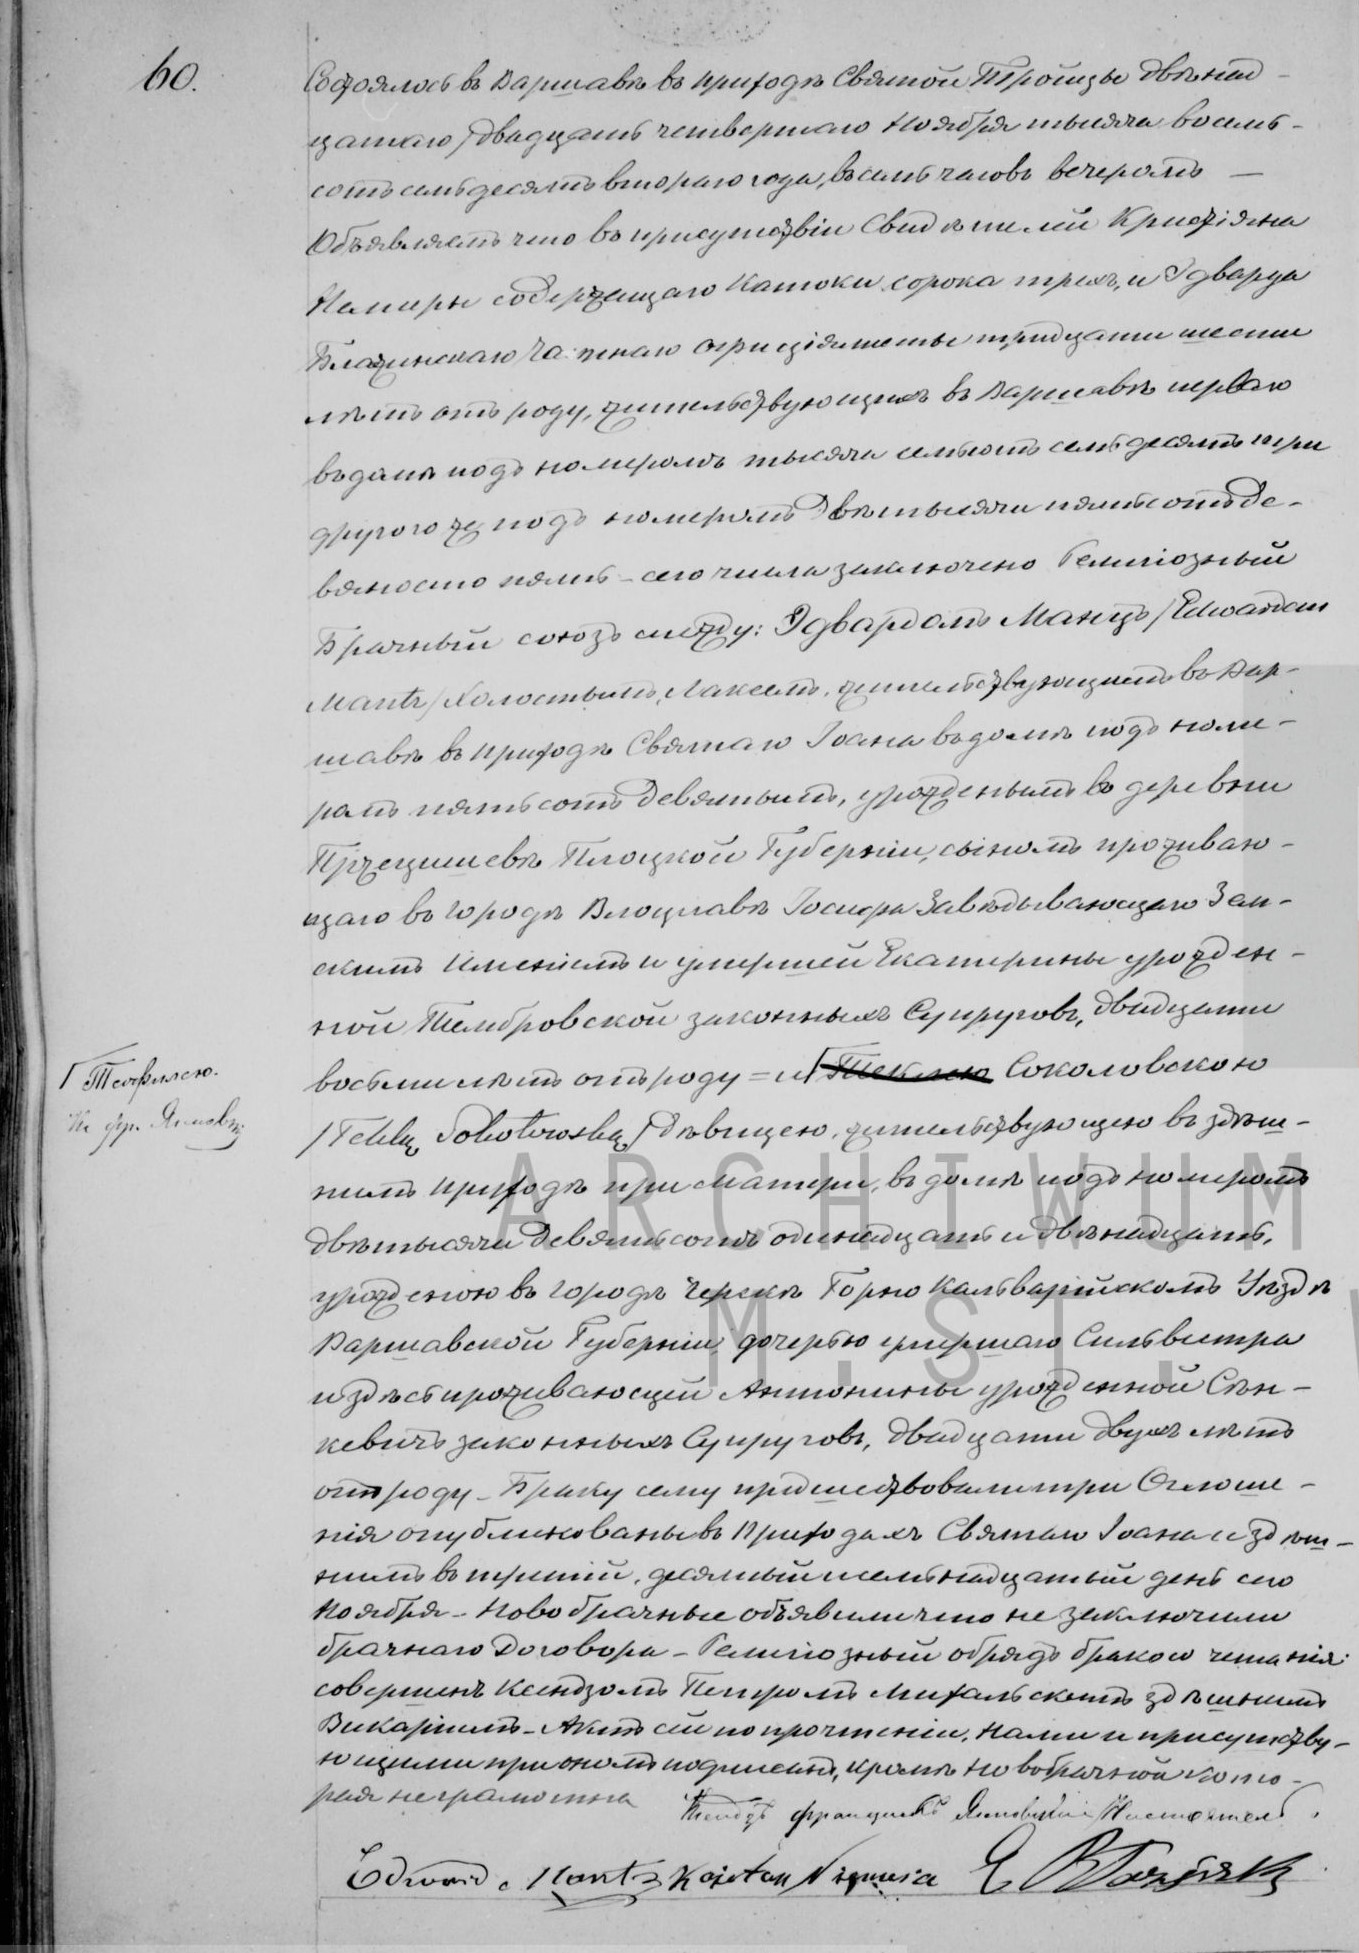 60.
Состоялось въ Варшавѣ въ приходѣ Святой Тройцы двѣнад-
цатаго /двадцать четвертаго Ноября тысяча восемь-
сотъ семьдесятъ втораго года, въ семь часовъ вечеромъ —
Объявляемъ что въ присутствіи Свидѣтелей Кристіяна
содержащаго сорока трехъ, и Эдварда
тридцати шести
лѣтъ отъ роду, жительствующихъ въ Варшавѣ перваго
въ домѣ подъ номеромъ тысяча семьсотъ семьдесятъ три
другого же подъ номеромъ двѣ тысячи пятьсотъ де-
вяносто пять – сего числа заключено Религіозный
Брачный союзъ между: Эдвардомъ Манцъ /Edwardem
Mantz/ Холостымъ, жительствующимъ въ Вар-
шавѣ въ приходѣ Святаго Іоана въ домѣ подъ номе-
ромъ пятьсотъ девятымъ, урожденымъ въ деревни
Плоцкой Губерніи, сыномъ проживаю-
щаго въ городѣ Влоцлавѣ Іосифа Завѣдывающаго Зем-
скимъ Имѣніемъ и умершей Екатерины урожден-
ной законныхъ Супруговъ, двадцати
восьми лѣтъ отъ роду = и Г Теклею Соколовскою
Г Теофилею.
Кс. фр.
/Teklą Sokołowską/ дѣвицею, жительствующею въ здѣш-
нимъ приходѣ при матери, въ домѣ подъ номеромъ
двѣ тысячи девятьсотъ одинадцать и двѣнадцать,
урожденою въ городѣ Черскѣ Горно Кальварійскомъ Уѣздѣ
Варшавской Губерніи, дочерью умершаго Сильвестра
и здѣсь проживающей Антонины урожденной Сѣн-
кевичъ законныхъ Супруговъ, двадцати двухъ лѣтъ
отъ роду – Браку сему предшествовали три Оглаше-
нія опубликованы въ Приходахъ Святаго Іоана и здѣш-
нимъ въ третій, десятый и семьнадцатый день сего
Ноября – Новобрачные объявили что не заключили
брачнаго Договора – Религіозный обрядъ бракосочетанія
совершенъ Ксендзомъ Петромъ Михальскимъ здѣшнимъ
Викаріемъ – Актъ сей по прочтеніи, Нами и присутству-
ющими при ономъ подписанъ, кромѣ новобрачной кото-
рая неграмотна Ксендзъ Францишекъ Настоятель
Edward Mantz Kajetan E
ARCHIWUM
M. ST.